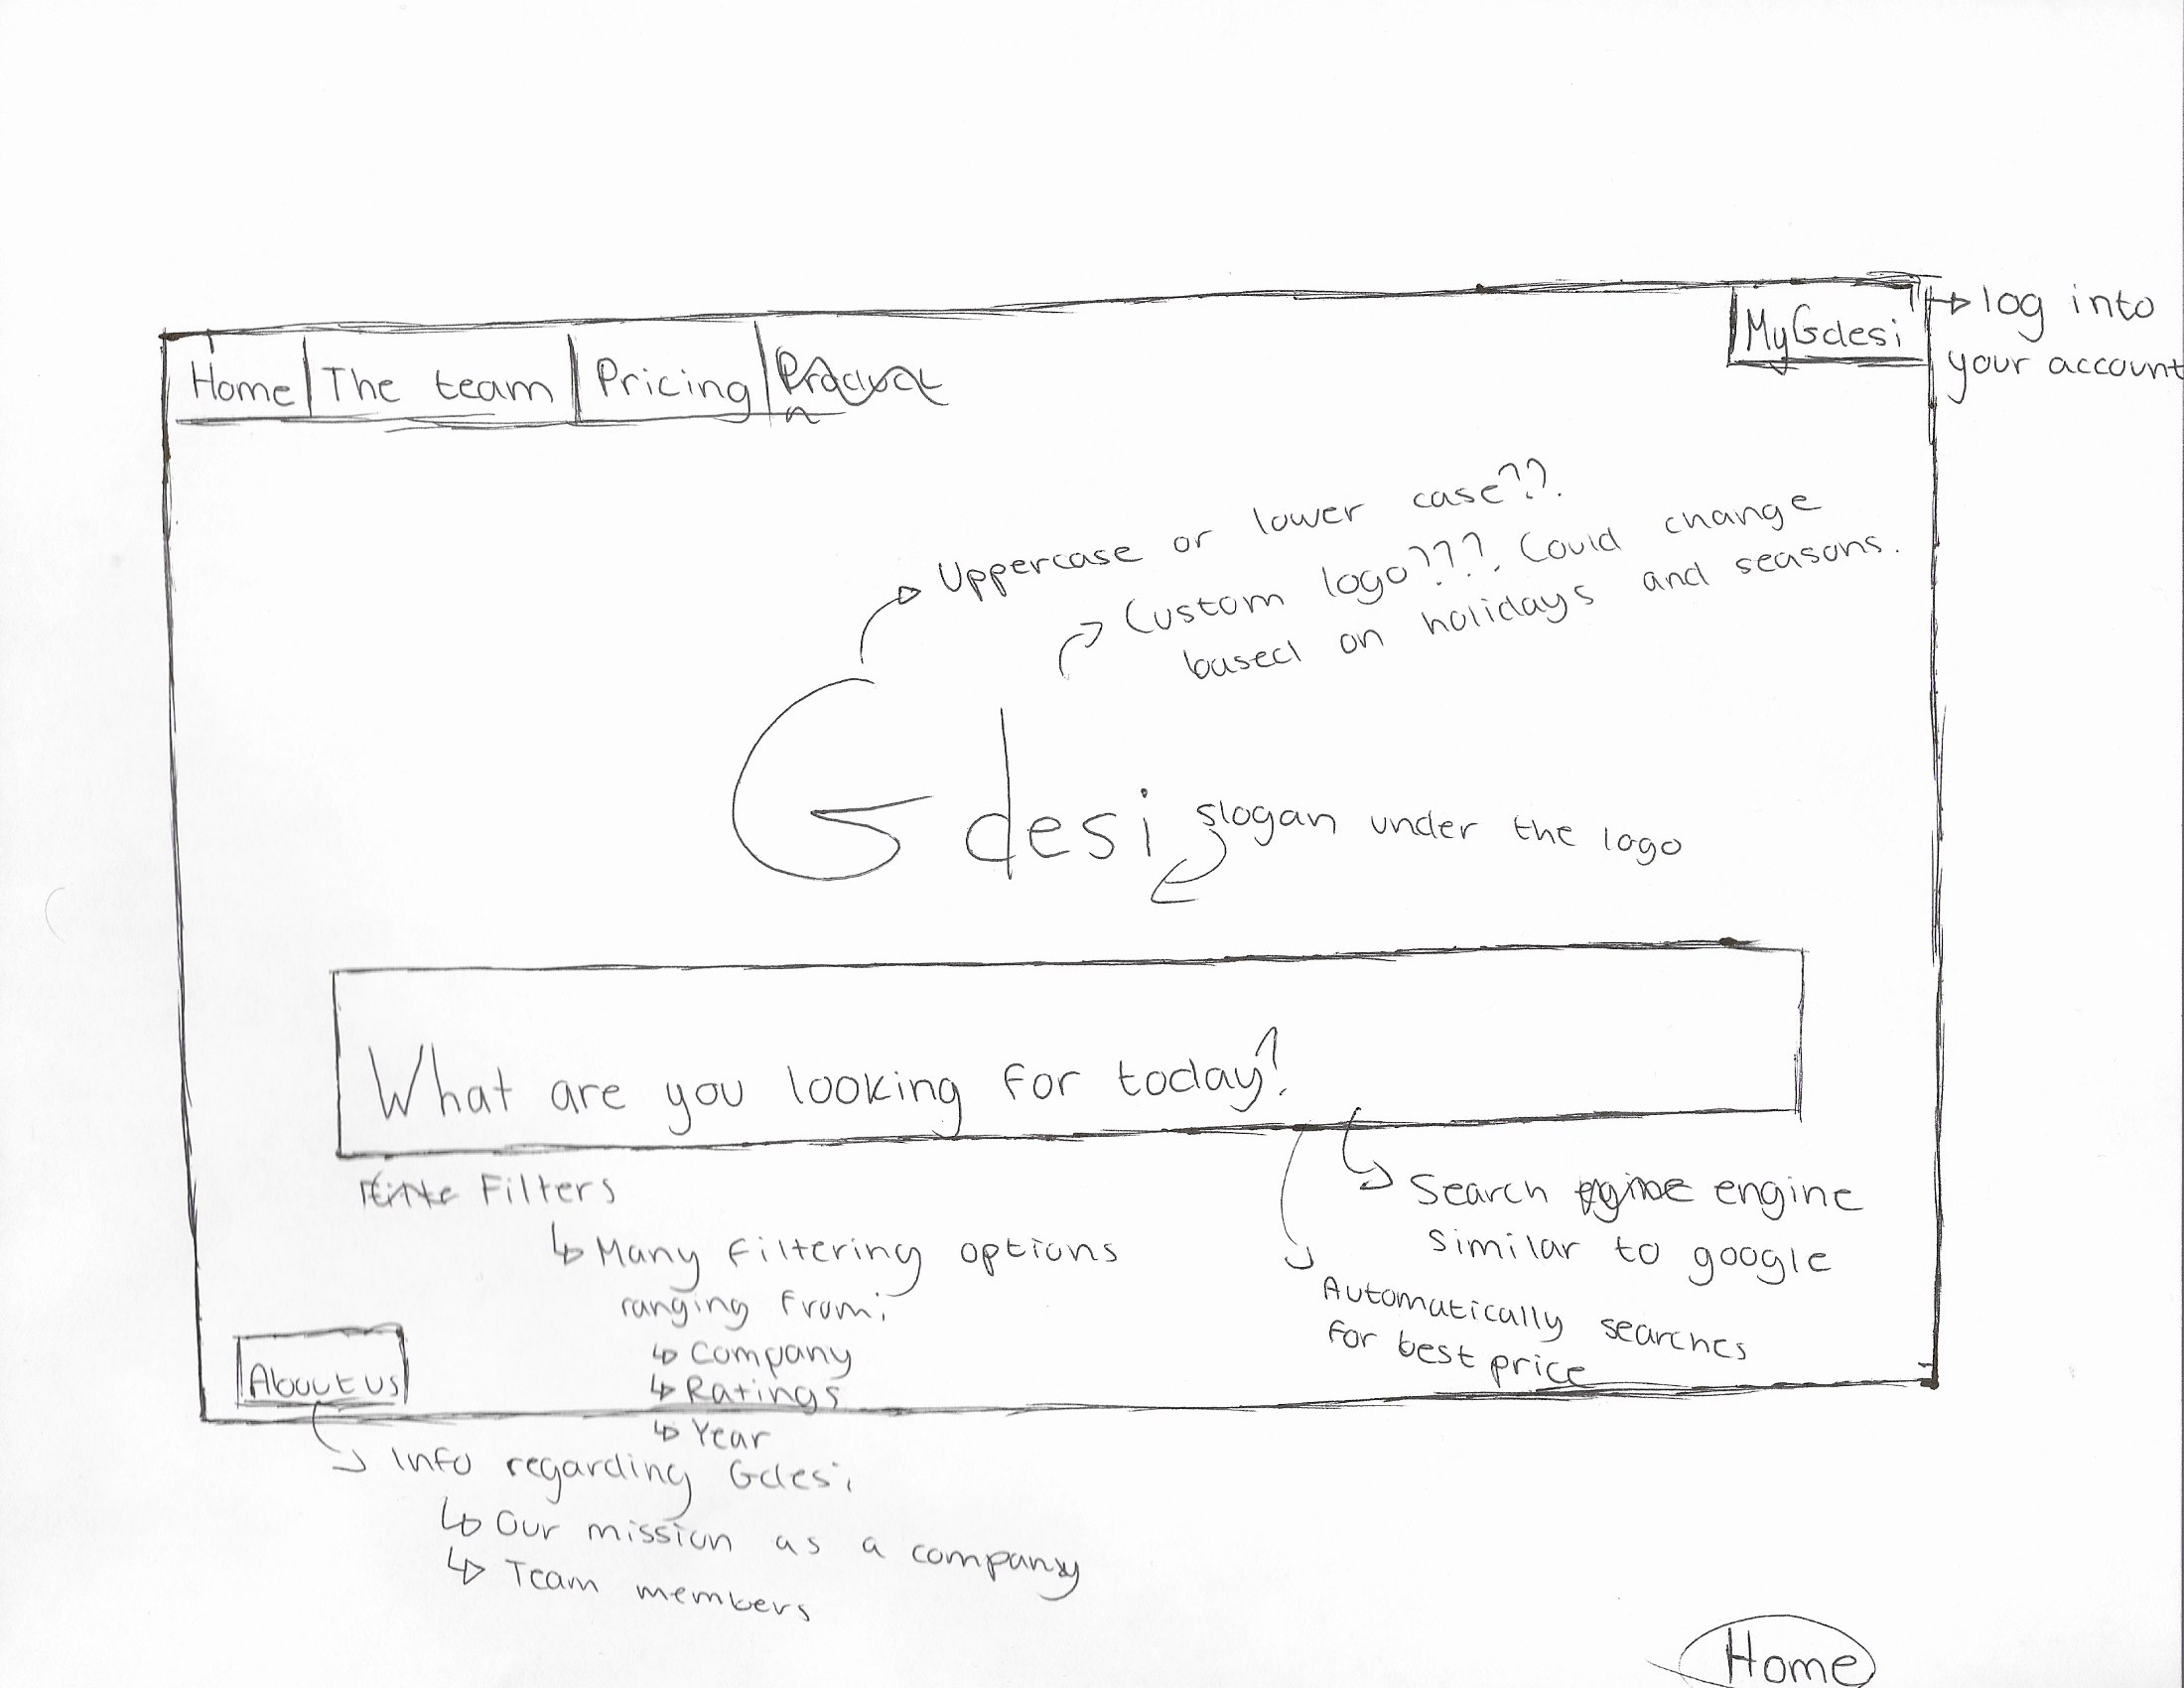 Home | The team | Pricing |
MyGdesi
log into
your account
Uppercase or lower case??.
Custom logo???. Could change
based on holidays and seasons.
Gdesi
slogan under the logo
What are you looking for today?
Filters
Many filtering options
ranging from:
Company
Ratings
Year
Search engine
similar to google
Automatically searches
for best price
About us
Info regarding Gdesi
Our mission as a company
Team members
Home